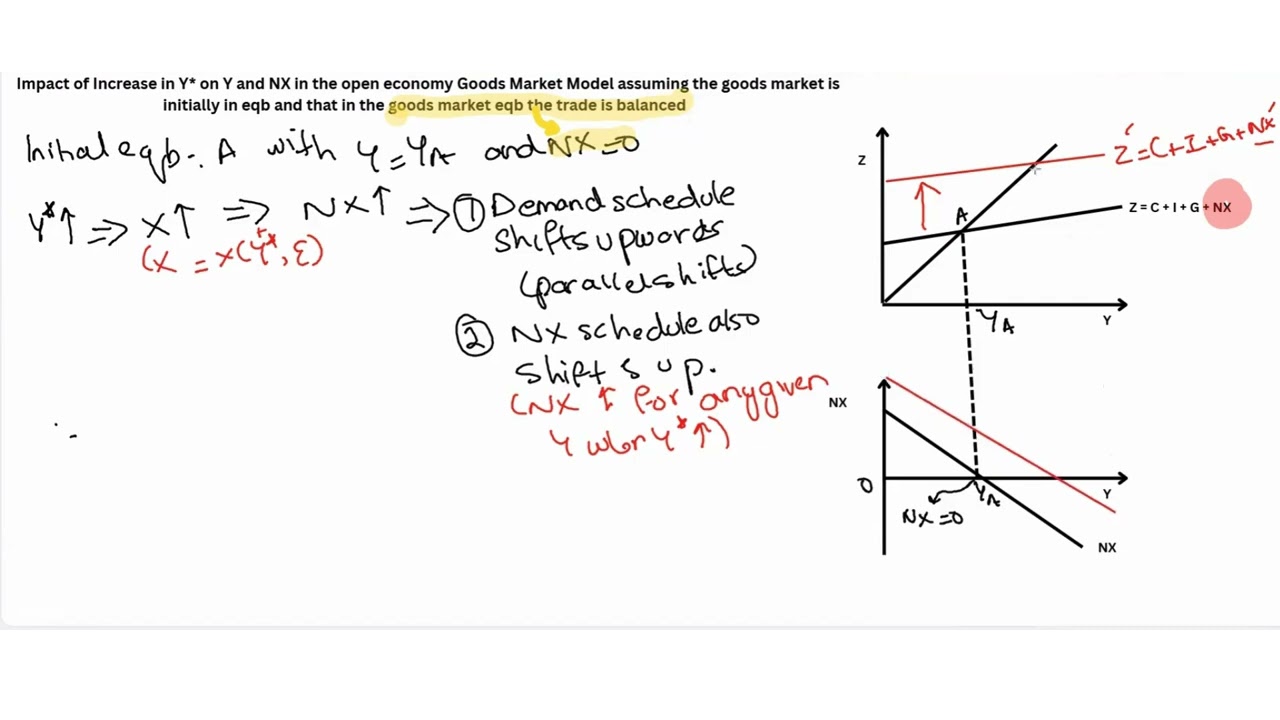 Impact of Increase in Y* on Y and NX in the open economy Goods Market Model assuming the goods market is
initially in eqb and that in the goods market eqb the trade is balanced
Initial eqb -. A with Y = YA and NX = 0
Y*↑ ⇒ X↑ ⇒ NX↑ ⇒ ① Demand schedule
shifts upwards
(parallel shifts)
(X = X(Y*, ε)
+
② NX schedule also
shifts up.
(NX ↑ for any given
Y wbr Y*↑)
Z
Z' = C+I+G+NX'
Z = C + I + G + NX
A
YA
Y
NX
0
YA
Y
NX = 0
NX